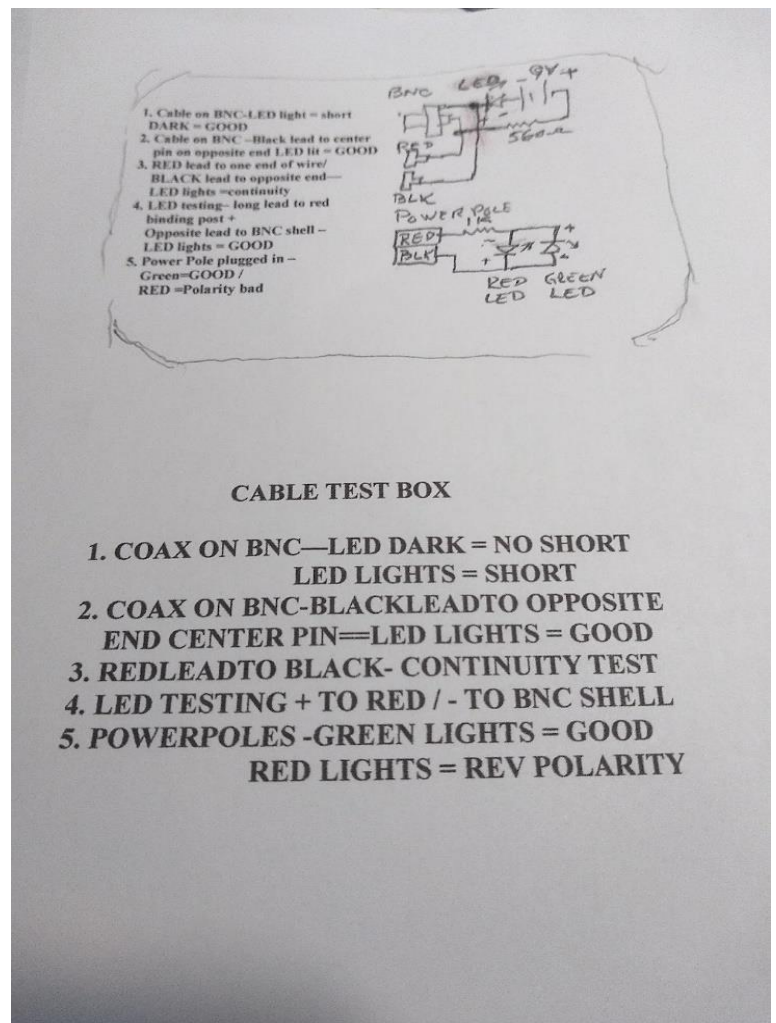 1. Cable on BNC-LED light = short
DARK = GOOD
2. Cable on BNC -Black lead to center
pin on opposite end LED lit = GOOD
3. RED lead to one end of wire/
BLACK lead to opposite end—
LED lights =continuity
4. LED testing– long lead to red
binding post +
Opposite lead to BNC shell –
LED lights = GOOD
5. Power Pole plugged in –
Green=GOOD /
RED =Polarity bad
BNC LED - 9V +
560Ω
RED
BLK
POWER POLE
1K
RED
BLK
- +
+ -
RED GREEN
LED LED
CABLE TEST BOX
1. COAX ON BNC—LED DARK = NO SHORT
LED LIGHTS = SHORT
2. COAX ON BNC-BLACKLEADTO OPPOSITE
END CENTER PIN==LED LIGHTS = GOOD
3. REDLEADTO BLACK- CONTINUITY TEST
4. LED TESTING + TO RED / - TO BNC SHELL
5. POWERPOLES -GREEN LIGHTS = GOOD
RED LIGHTS = REV POLARITY